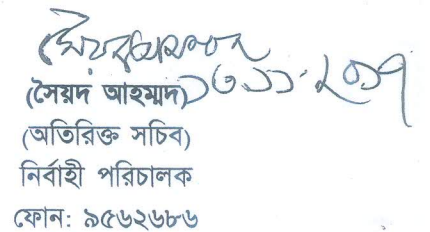 (সৈয়দ আহম্মদ)
(অতিরিক্ত সচিব)
নির্বাহী পরিচালক
ফোন: ৯৫৬২৬৮৬